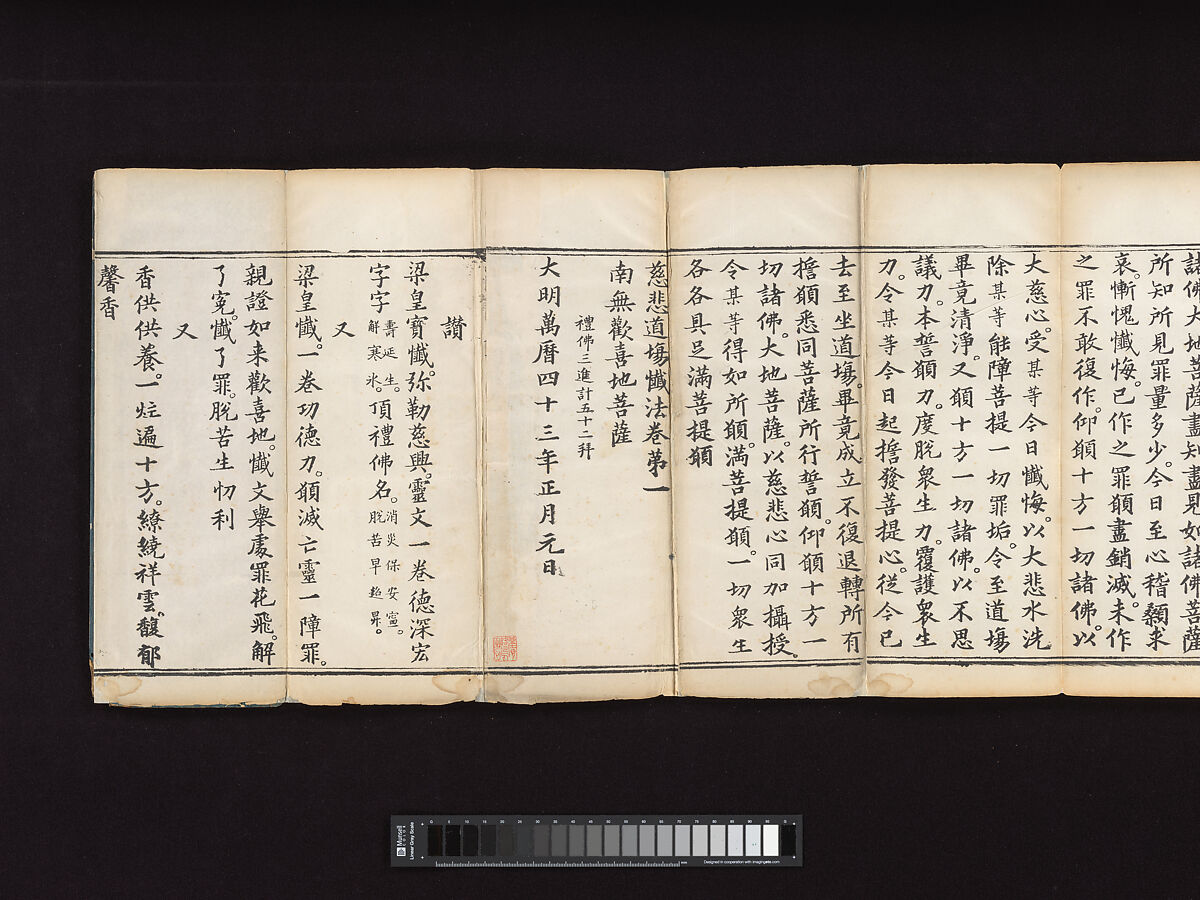 諸佛大地菩薩盡知盡見如諸佛菩薩
所知所見罪量多少。今日至心稽顙來
哀。慚愧懺悔。已作之罪願盡銷滅。未作
之罪不敢復作。仰願十方一切諸佛。以
大慈心。受某等今日懺悔。以大悲水洗
除某等能障菩提一切罪垢。令至道場
畢竟清淨。又願十方一切諸佛。以不思
議力。本誓願力。度脫衆生力。覆護衆生
力。令某等今日起擔發菩提心。從今已
去至坐道場。畢竟成立不復退轉所有
擔願悉同菩薩所行誓願。仰願十方一
切諸佛。大地菩薩。以慈悲心同加攝授。
令某等得如所願。滿菩提願。一切衆生
各各具足滿菩提願
慈悲道場懺法卷第一
南無歡喜地菩薩
禮佛三進計五十二拜
大明萬曆四十三年正月元日
讃
梁皇寶懺。弥勒慈興。靈文一卷德深宏
字字壽延生。解寒氷。頂禮佛名。消災保安寧。脫苦早超昇。
又
梁皇懺。一卷功德力。願滅亡靈一障罪。
親證如来歡喜地。懺文舉處罪花飛。解
了冤。懺了罪。脫苦生忉利
又
香供供養。一炷遍十方。繚繞祥雲。馥郁
馨香
Munsell
COLOR
Linear Gray Scale
0 5 10 15 20 25 30 35 40 45 50 55 60 65 70 75 80 85 90 95
Designed in cooperation with imagingetc.com